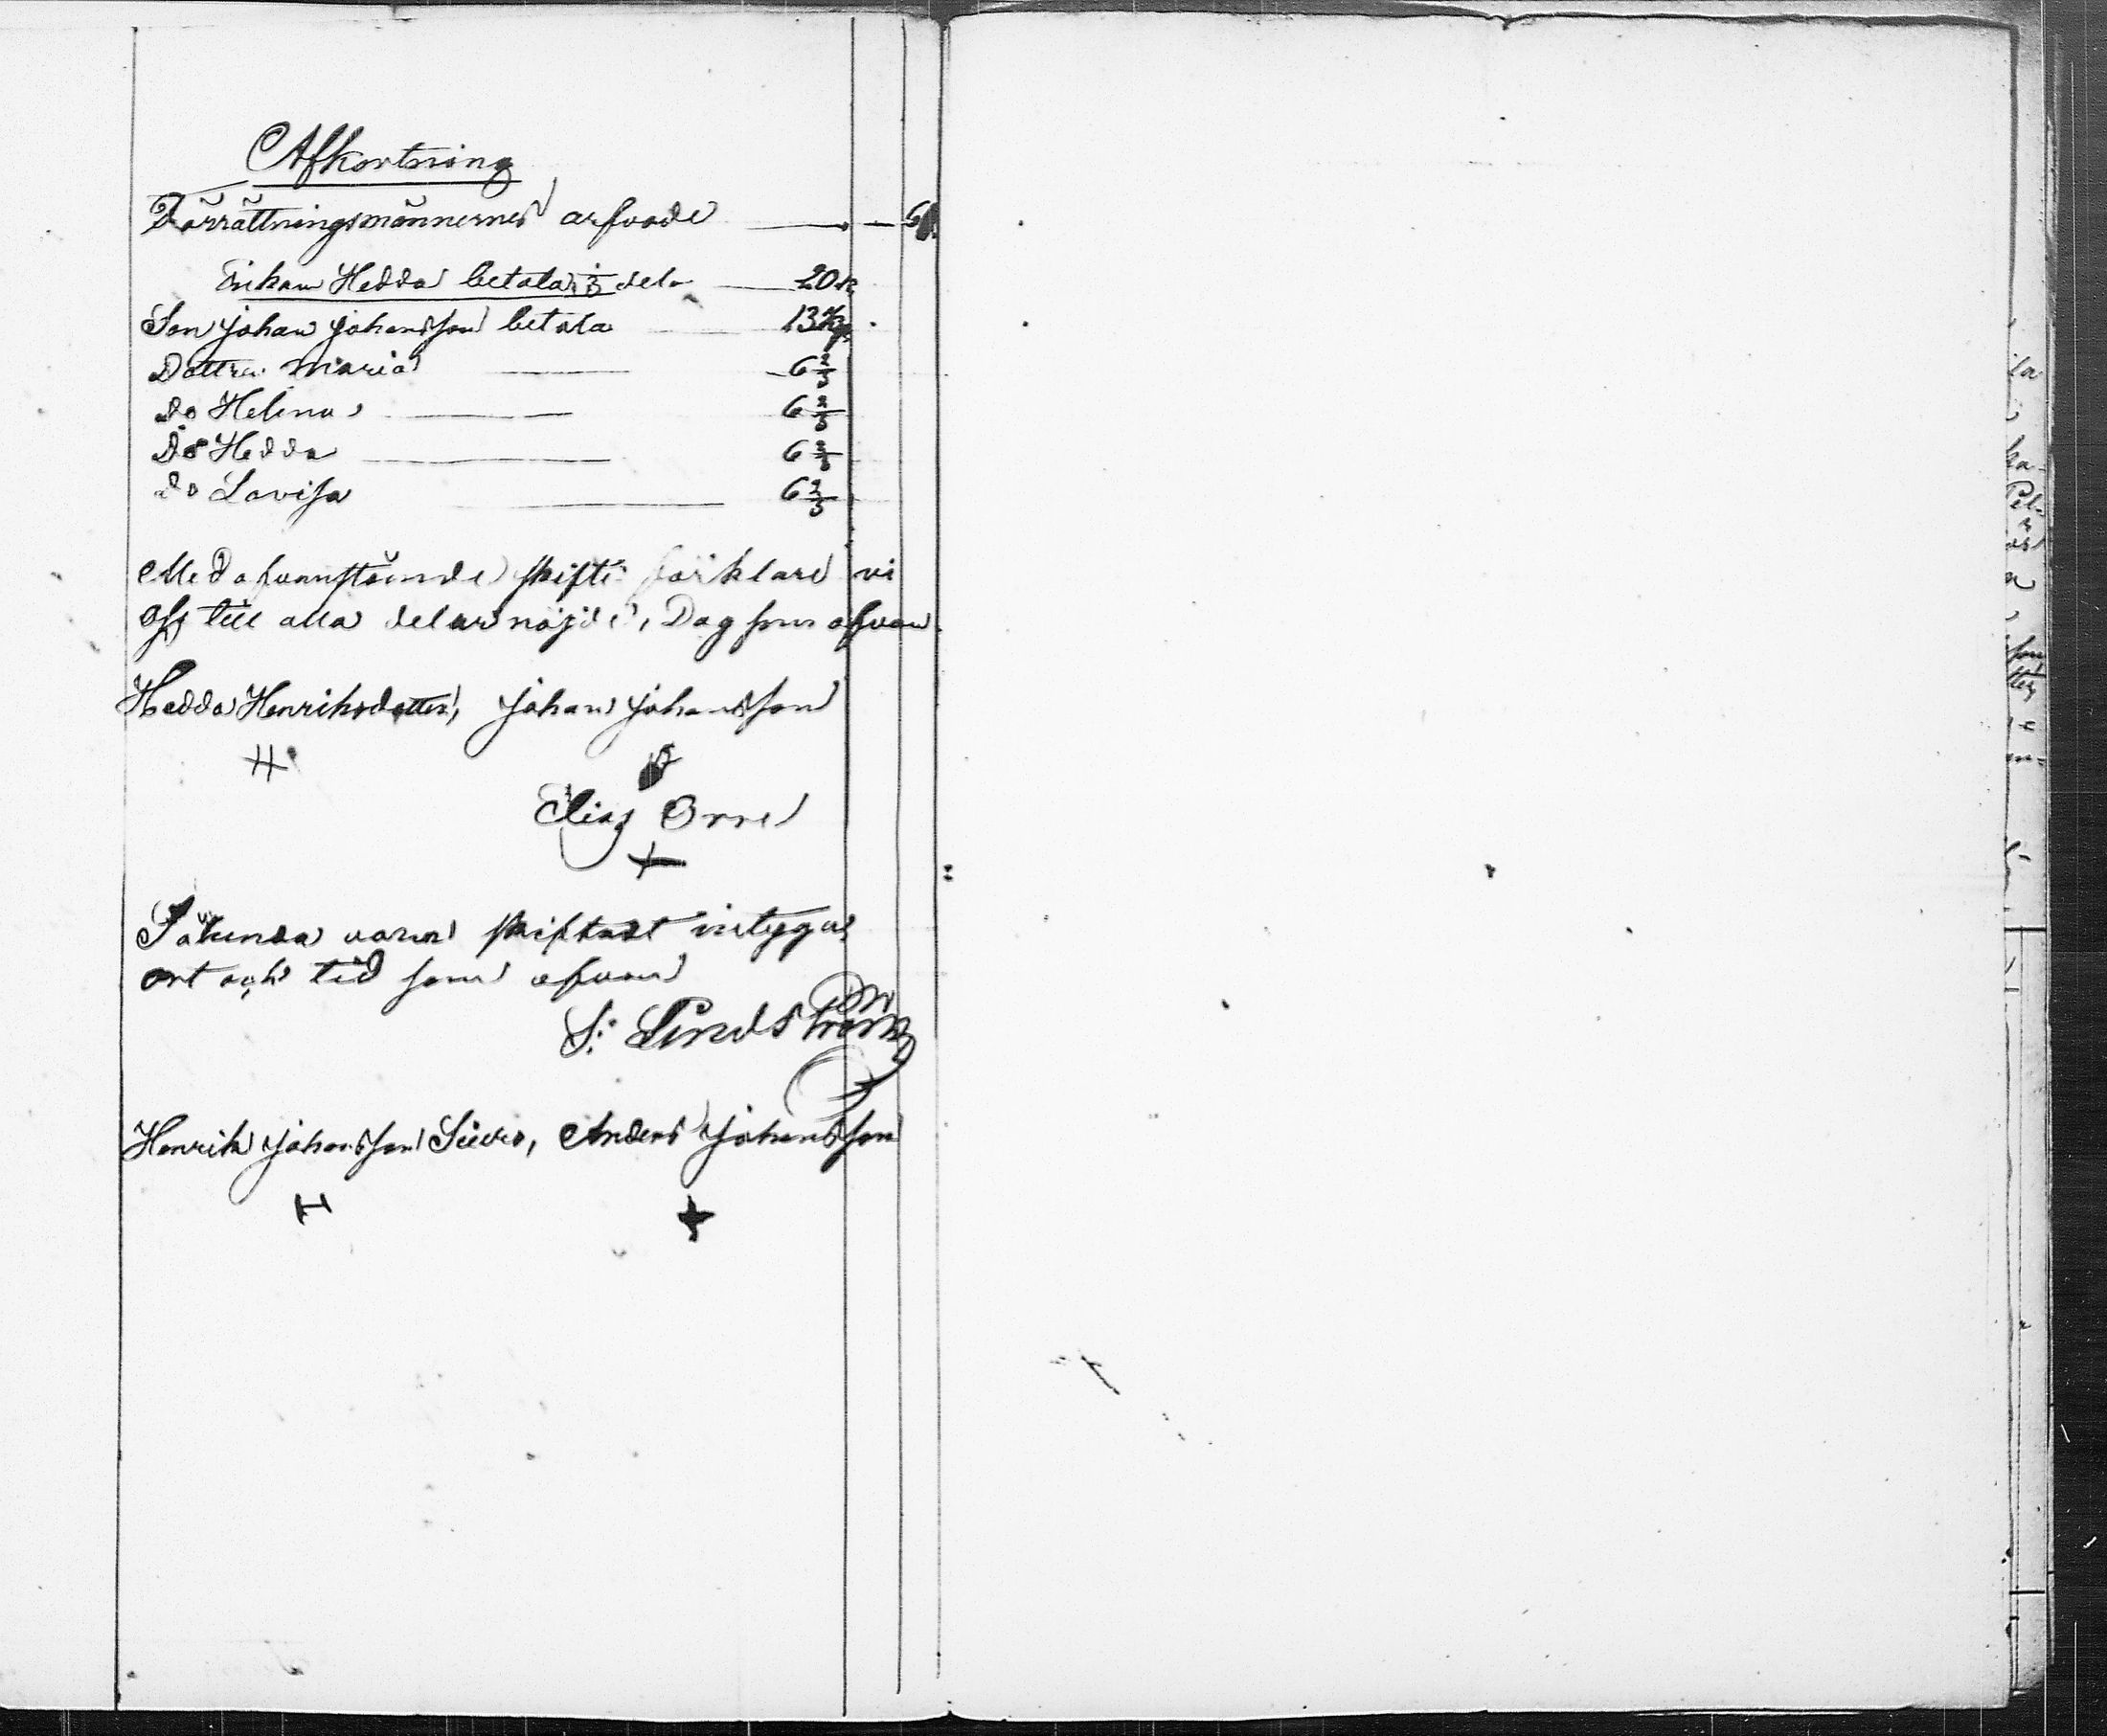 Afkortning
Förrättningsmännernes arfvode — — 6
Enkan Hedda betalar 1/3 del — 20 k
Son Johan Johansson betala 13 1/3
Dottren Maria — 6 2/3
do Helena — 6 2/3
Do Hedda — 6 2/3
do Lovisa — 6 2/3
Med ofvanstående skifte förklare vi
oss till alla delar nöjde, Dag som ofvan
Hedda Henriksdotter, Johan Johansson
Elias Orre
Sålunda vara skiftadt intygar
ort och tid som ofvan
S: Lindström
Henrik Johansson Sievi, Anders Johansson